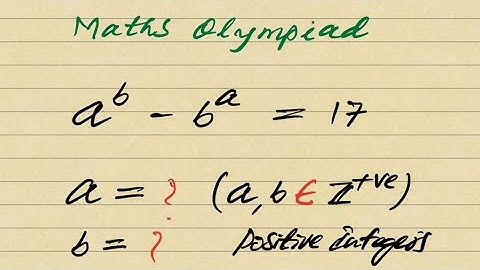 Maths Olympiad
a^b - b^a = 17
a = ? (a, b ∈ Z^+ve)
b = ? positive integers